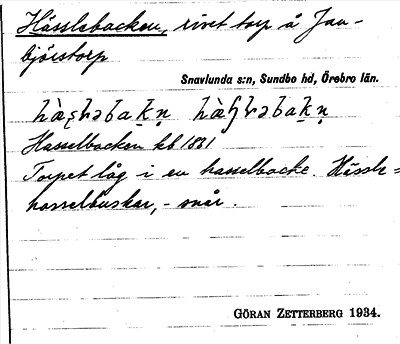 Hässlebacken, rivet torp å Jan-
björstorp
Snavlunda s:n, Sundbo hd, Örebro län.
Hasselbacken kb 1881
Torpet låg i en hasselbacke. Hässle =
hasselbuskar, - snår.
GÖRAN ZETTERBERG 1934.